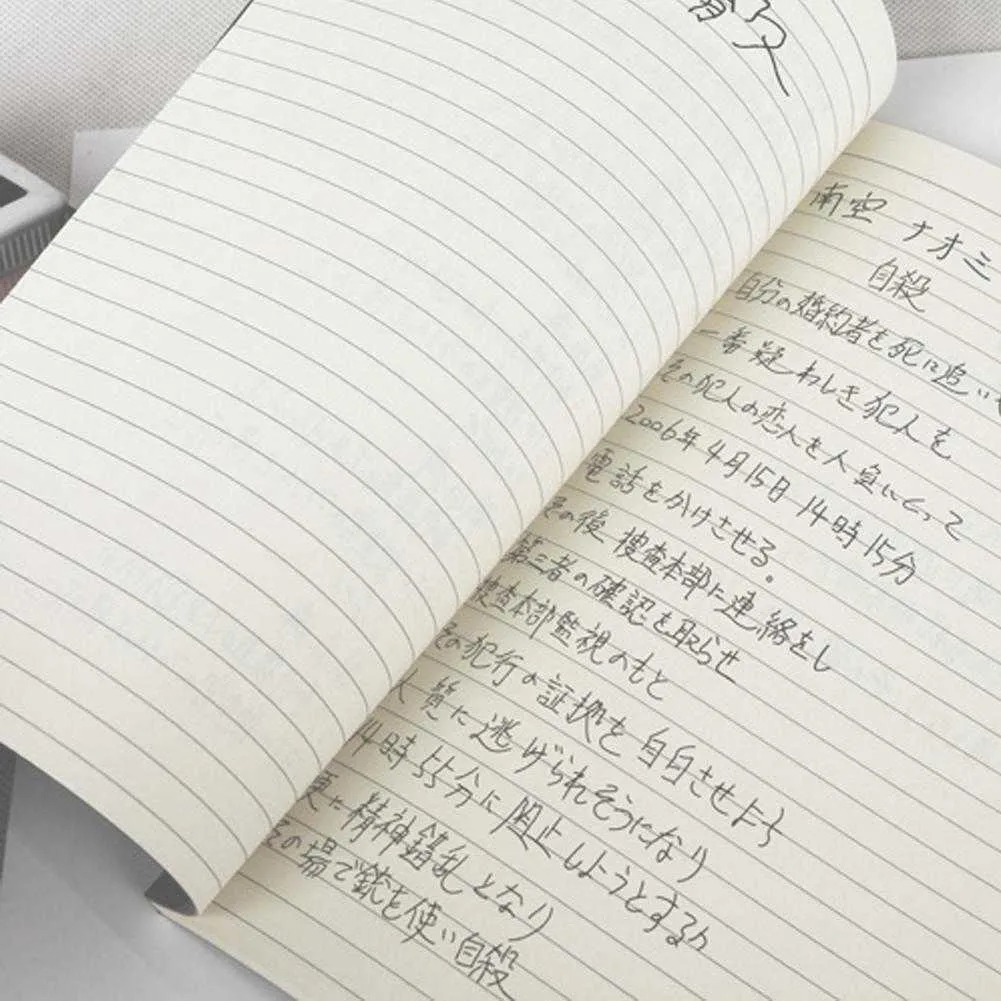 南空 ナオミ
自殺
自分の婚約者を死に追いや
一番疑わしき犯人を
その犯人の恋人を人質にとって
2006年4月15日 14時15分
電話をかけさせる。
その後 捜査本部に連絡をし
第三者の確認を取らせ
捜査本部監視のもと
その犯行の証拠を自白させよう
人質に逃げられそうになり
4時55分に阻止しようとするが
更に精神錯乱となり
その場で銃を使い自殺